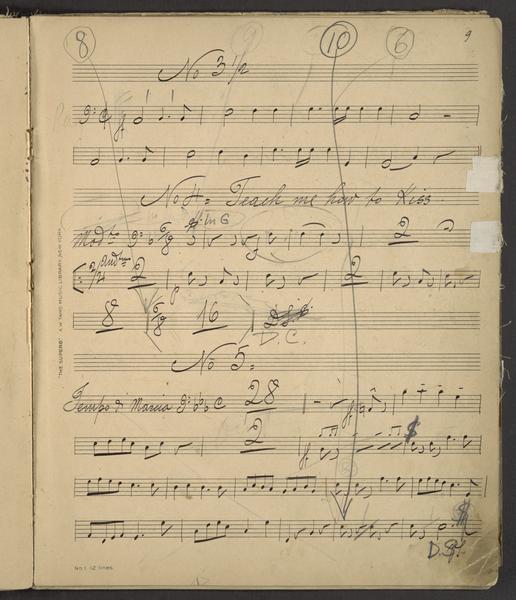 8 10 6
9
No 3 1/2
No 4 = Teach me how to Kiss.
in G
Modto 6/8 2
2/4 2 2
8 6/8 16 D.S.
D.C.
No 5 =
Tempo di Marcia C 28
2
D.S.
"THE SUPERB" A.W. TAMS MUSIC LIBRARY, NEW YORK
No 1. 12 lines.